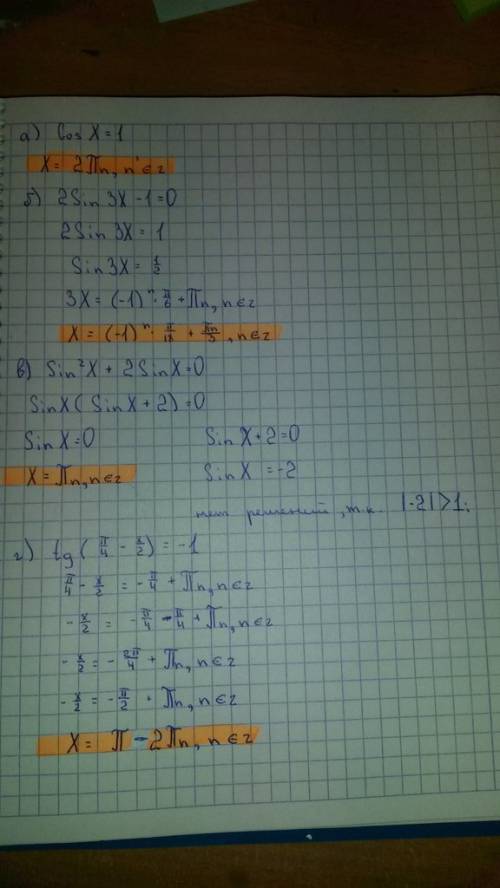 а) Cos X = 1
X = 2πn, n ∈ z
б) 2Sin 3X - 1 = 0
2Sin 3X = 1
Sin 3X = 1/2
3X = (-1)ⁿ · π/6 + πn, n ∈ z
X = (-1)ⁿ · π/18 + πn/3, n ∈ z
в) Sin²X + 2SinX = 0
SinX (SinX + 2) = 0
SinX = 0 SinX + 2 = 0
X = πn, n ∈ z SinX = -2
нет решений, т.к. |-2| > 1;
г) tg (π/4 - x/2) = -1
π/4 - x/2 = -π/4 + πn, n ∈ z
-x/2 = -π/4 - π/4 + πn, n ∈ z
-x/2 = -2π/4 + πn, n ∈ z
-x/2 = -π/2 + πn, n ∈ z
X = π - 2πn, n ∈ z